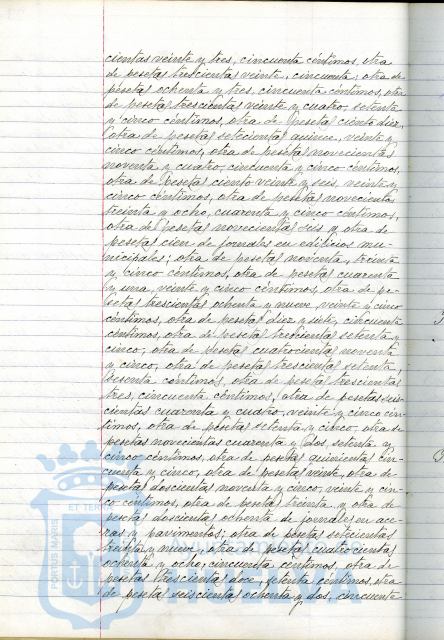 cientas veinte y tres, cincuenta céntimos, otra
de pesetas trescientas veinte, cincuenta, otra de
pesetas ochenta y tres, cincuenta céntimos, otra
de pesetas trescientas veinte y cuatro, setenta
y cinco céntimos, otra de pesetas ciento diez,
otra de pesetas setecientas quince, veinte y
cinco céntimos, otra de pesetas novecientas
noventa y cuatro, cincuenta y cinco céntimos,
otra de pesetas ciento veinte y seis, veinte y
cinco céntimos, otra de pesetas novecientas
treinta y ocho, cuarenta y cinco céntimos,
otra de pesetas novecientas seis y otra de
pesetas cien de jornales en edificios mu-
nicipales; otra de pesetas noventa, treinta
y cinco céntimos, otra de pesetas cuarenta
y una, veinte y cinco céntimos, otra de pe-
setas trescientas ochenta y nueve, veinte y cinco
céntimos, otra de pesetas diez y siete, cincuenta
céntimos, otra de pesetas trescientas setenta y
cinco, otra de pesetas cuatrocientas noventa
y cinco, otra de pesetas trescientas setenta,
sesenta céntimos, otra de pesetas trescientas
tres, cincuenta céntimos, otra de pesetas seis-
cientas cuarenta y cuatro, veinte y cinco cén-
timos, otra de pesetas setenta y cinco, otra de
pesetas novecientas cuarenta y dos, setenta y
cinco céntimos, otra de pesetas quinientas cin-
cuenta y cinco, otra de pesetas veinte, otra de
pesetas doscientas noventa y cinco, veinte y cin-
co céntimos, otra de pesetas treinta, y otra de
pesetas doscientas ochenta de jornales en ace-
ras y pavimentos; otra de pesetas setecientas
treinta y nueve, otra de pesetas cuatrocientas
ochenta y ocho, cincuenta céntimos, otra de
pesetas trescientas doce, setenta céntimos, otra
de pesetas seiscientas ochenta y dos, cincuenta
PORTUS MARIS
ET TER